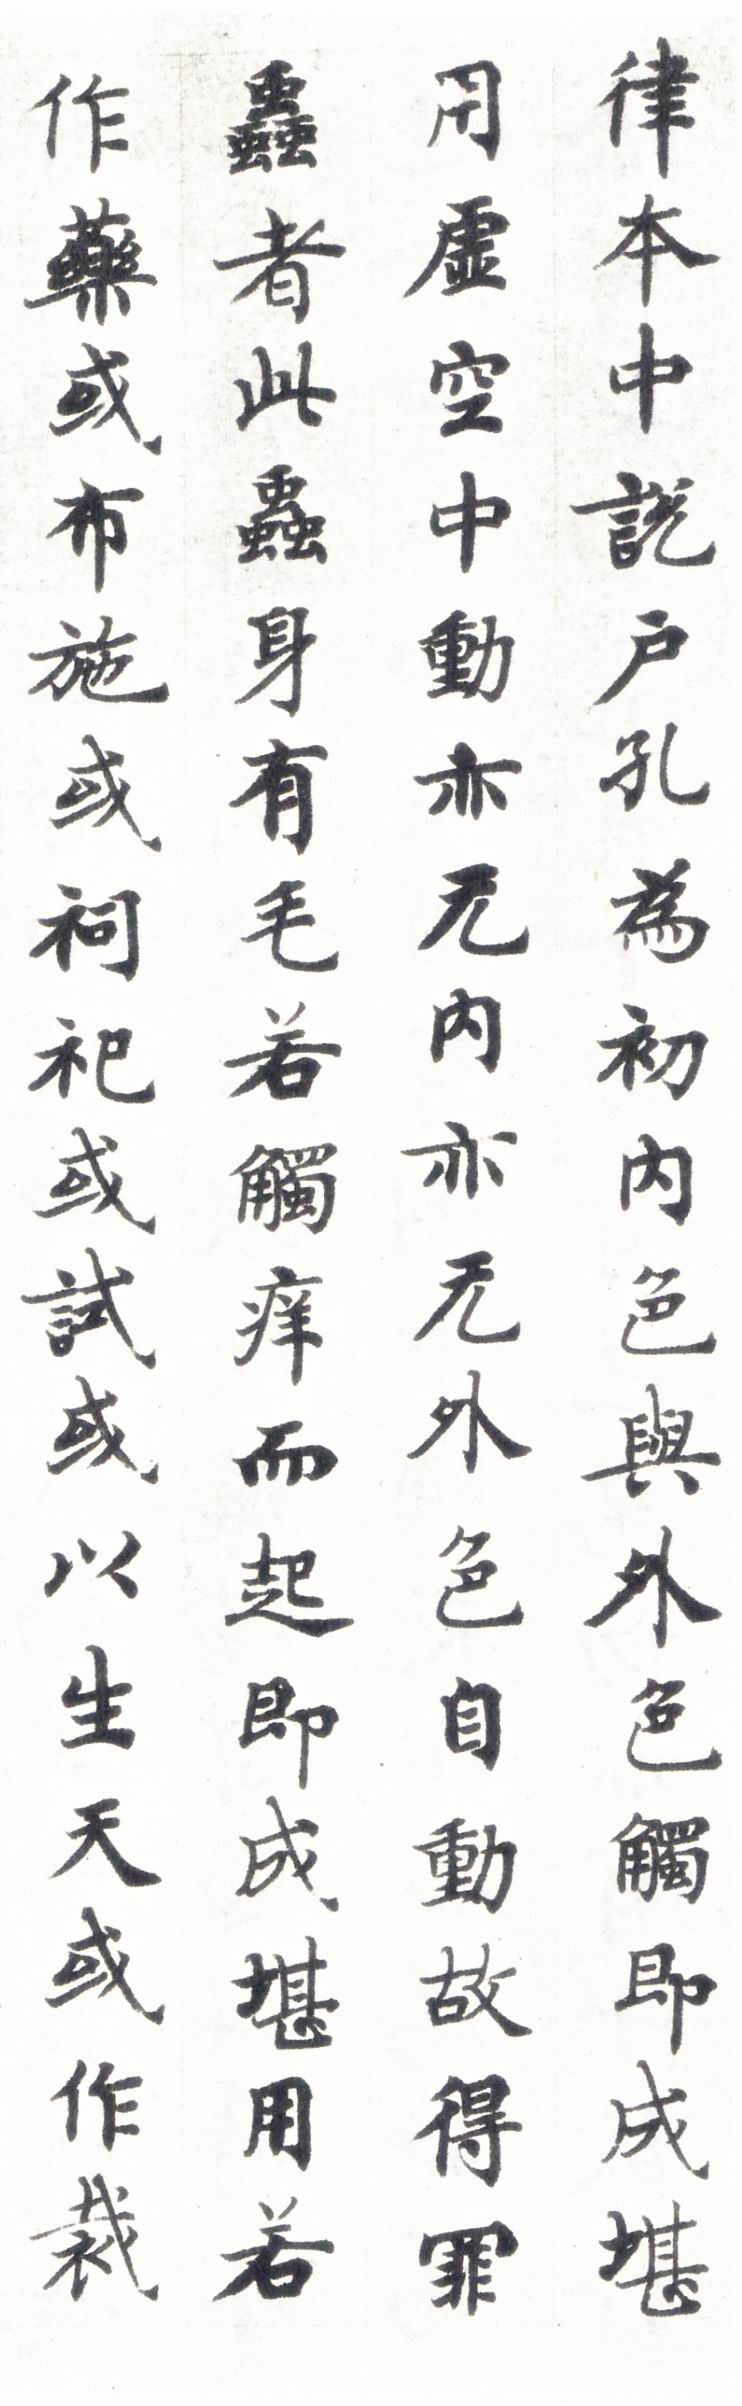 律本中說戶孔為初內色與外色觸即成堪
用虛空中動亦无內亦无外色自動故得罪
蟲者此蟲身有毛若觸痒而起即成堪用若
作藥或布施或祠祀或試或以生天或作裁